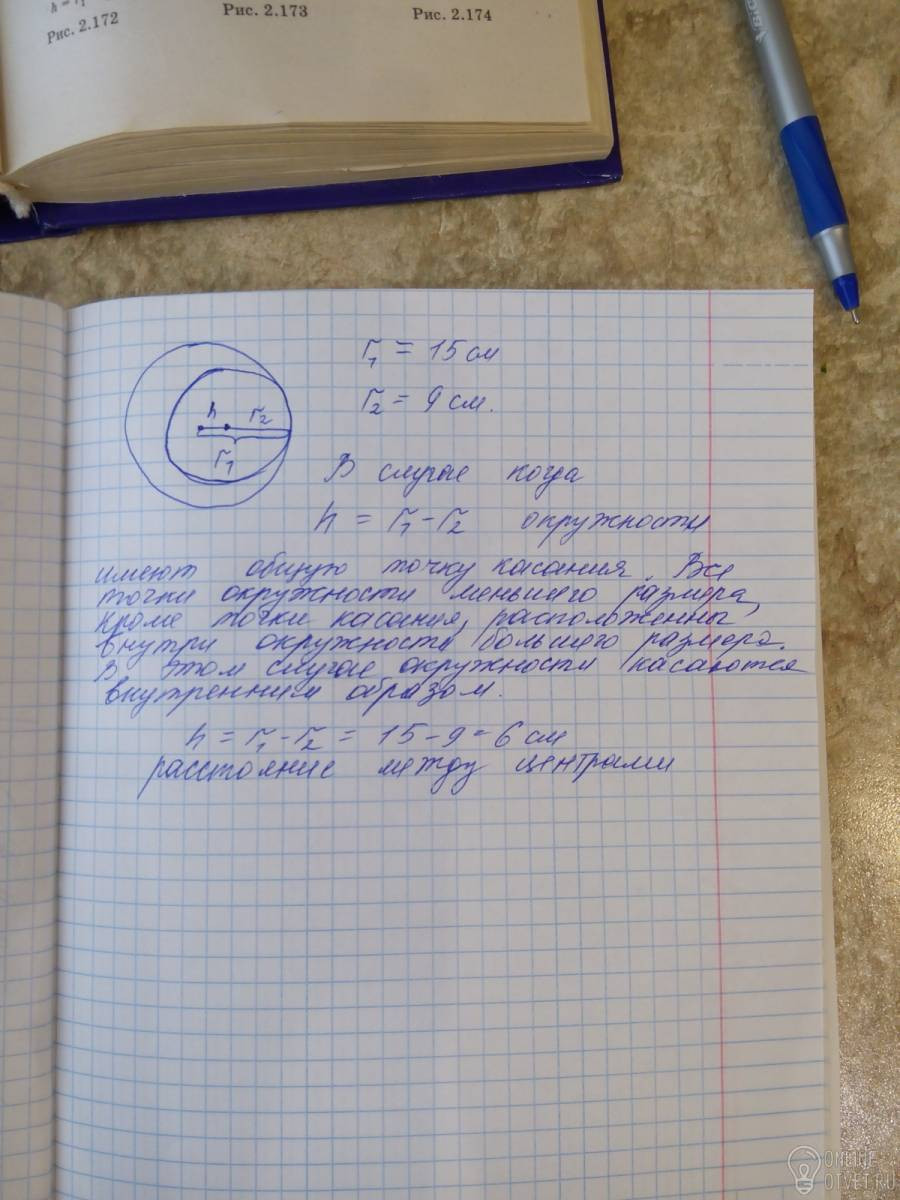 Рис. 2.172
Рис. 2.173
Рис. 2.174
h
r₂
r₁
r₁ = 15 см
r₂ = 9 см.
В случае когда
h = r₁ - r₂ окружности
имеют общую точку касания. Все
точки окружности меньшего размера,
кроме точки касания, расположенны
внутри окружности большего размера.
В этом случае окружности касаются
внутренним образом.
h = r₁ - r₂ = 15 - 9 = 6 см
расстояние между центрами
ONLINE-
OTVET.RU